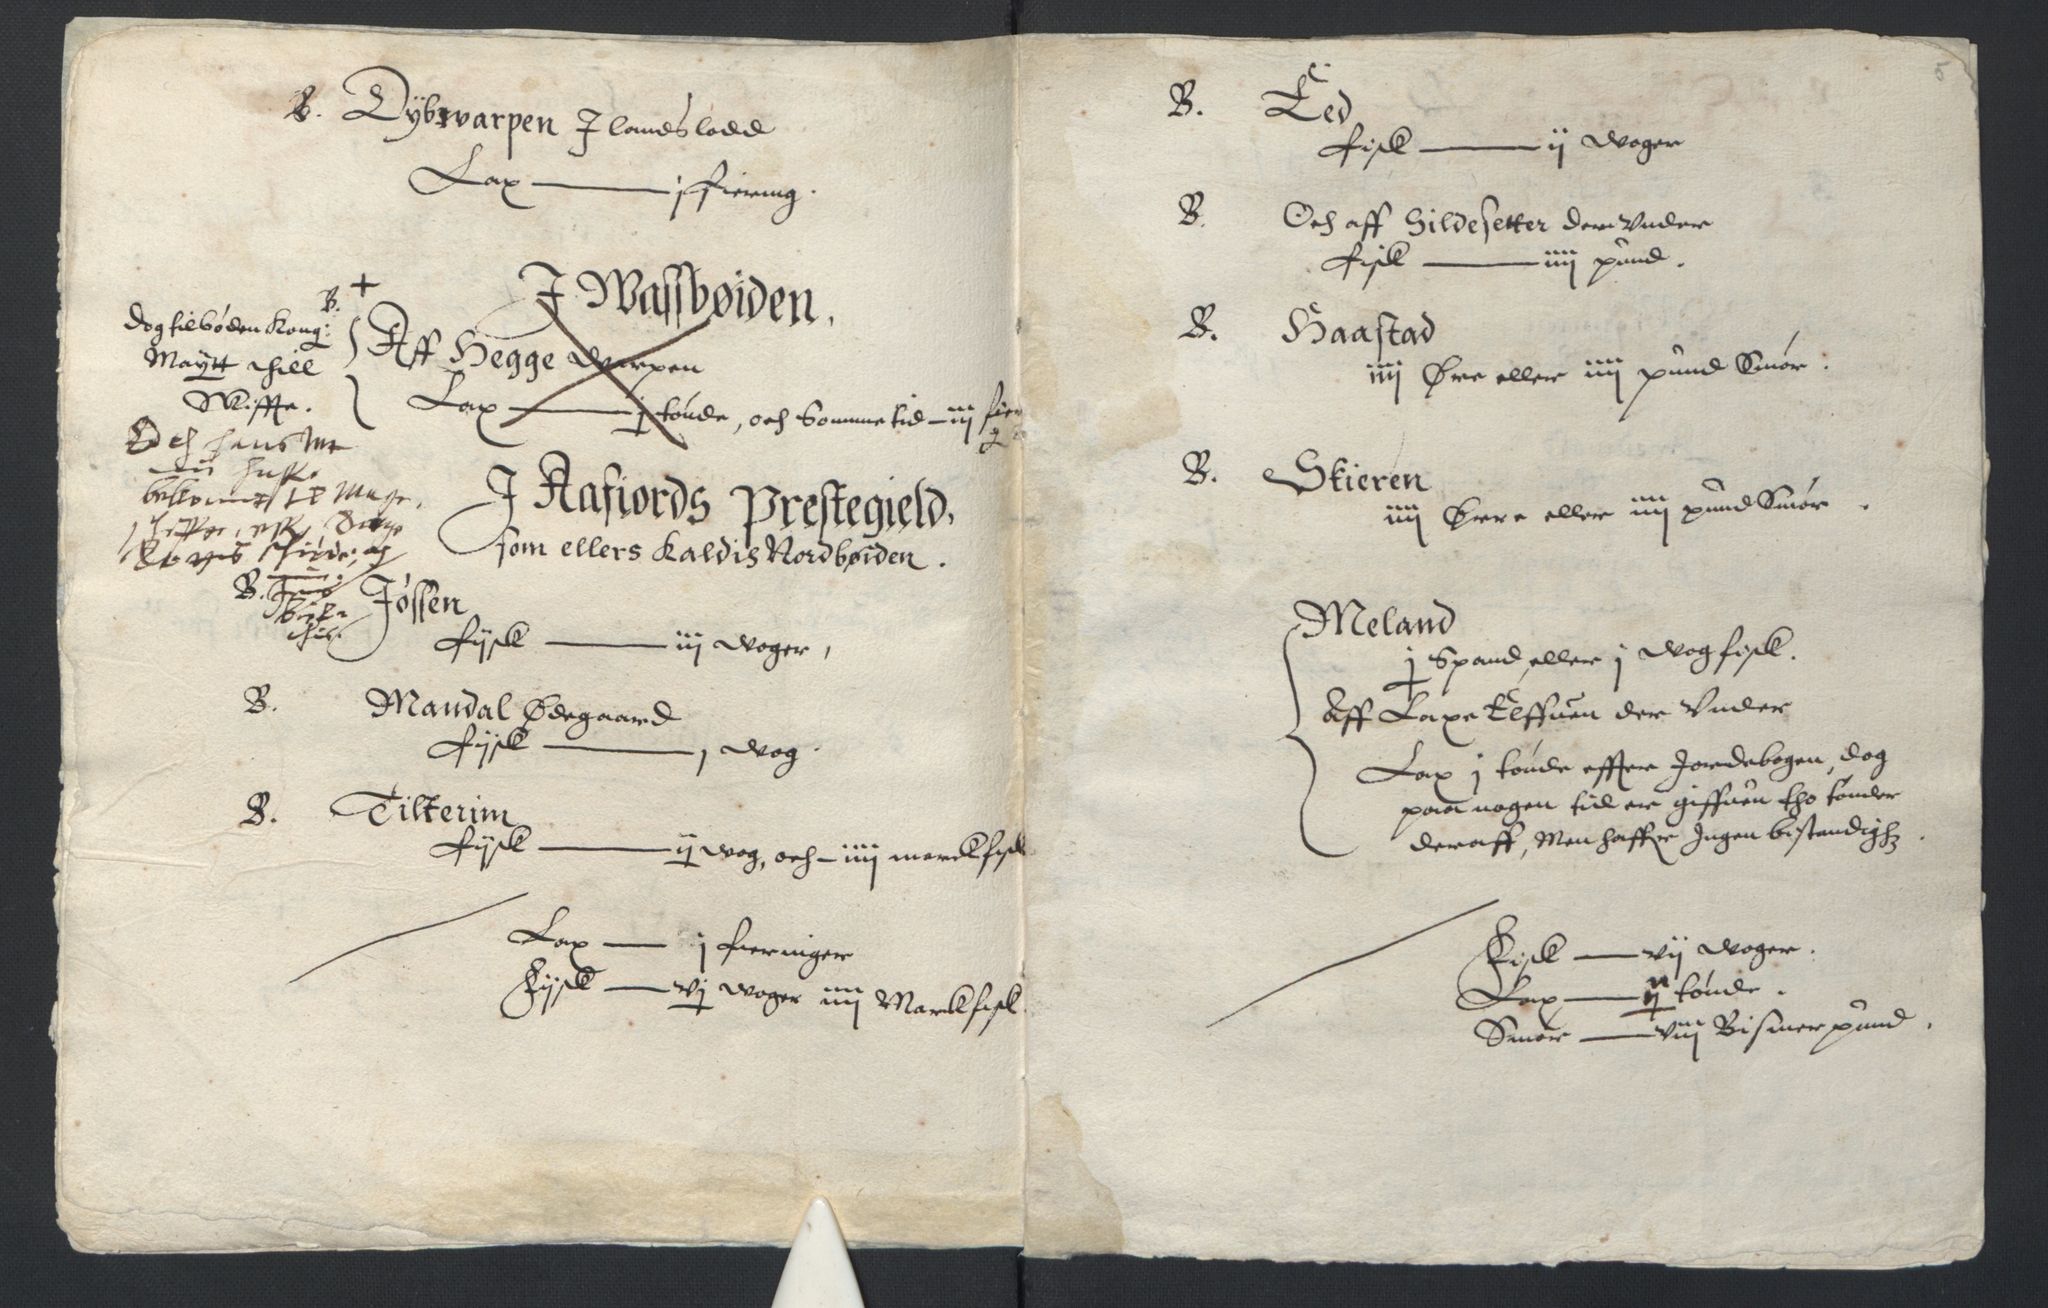 B. Dybwarpen J landslodd
Lax — j fiering.
J Wassbøiden.
B. +
Dog tilbøden Kong:
Maytt thill
Skiffte.
Aff Hegge Warpen
Lax — j tønde, och Sommetid — iij fier
Och hans Mtt
J Aafiords Prestegield,
som ellers Kaldis Nordbøiden.
B. Jössen
fiisk — iij woger,
B. Mandal Ødegaard
fiisk — j wog.
B. Tilterim
fiisk — ij wog, och — iiij marckfisk
Lax — j fieringer
Fiisk — vj woger iiij Marckfisk.
5
B. Eed
fisk — ij woger
B. Och aff Sildesetter der Vnder
fisk — iiij pund.
B. Haastad
iiij Øre eller iiij pund Smør.
B. Skieren
iiij Øre eller iiij pund Smør.
Meland
j Spand, eller j wog fisk.
Aff Laxe Elffuen der Vnder
Lax j tønde effter Jordebogen, dog
paa nogen tid er giffuen tho tønder
deraff, Men haffuer Jngen bestandighz.
Fisk — vij woger.
Lax — ij tønde.
Smør — viij Bismer pund.